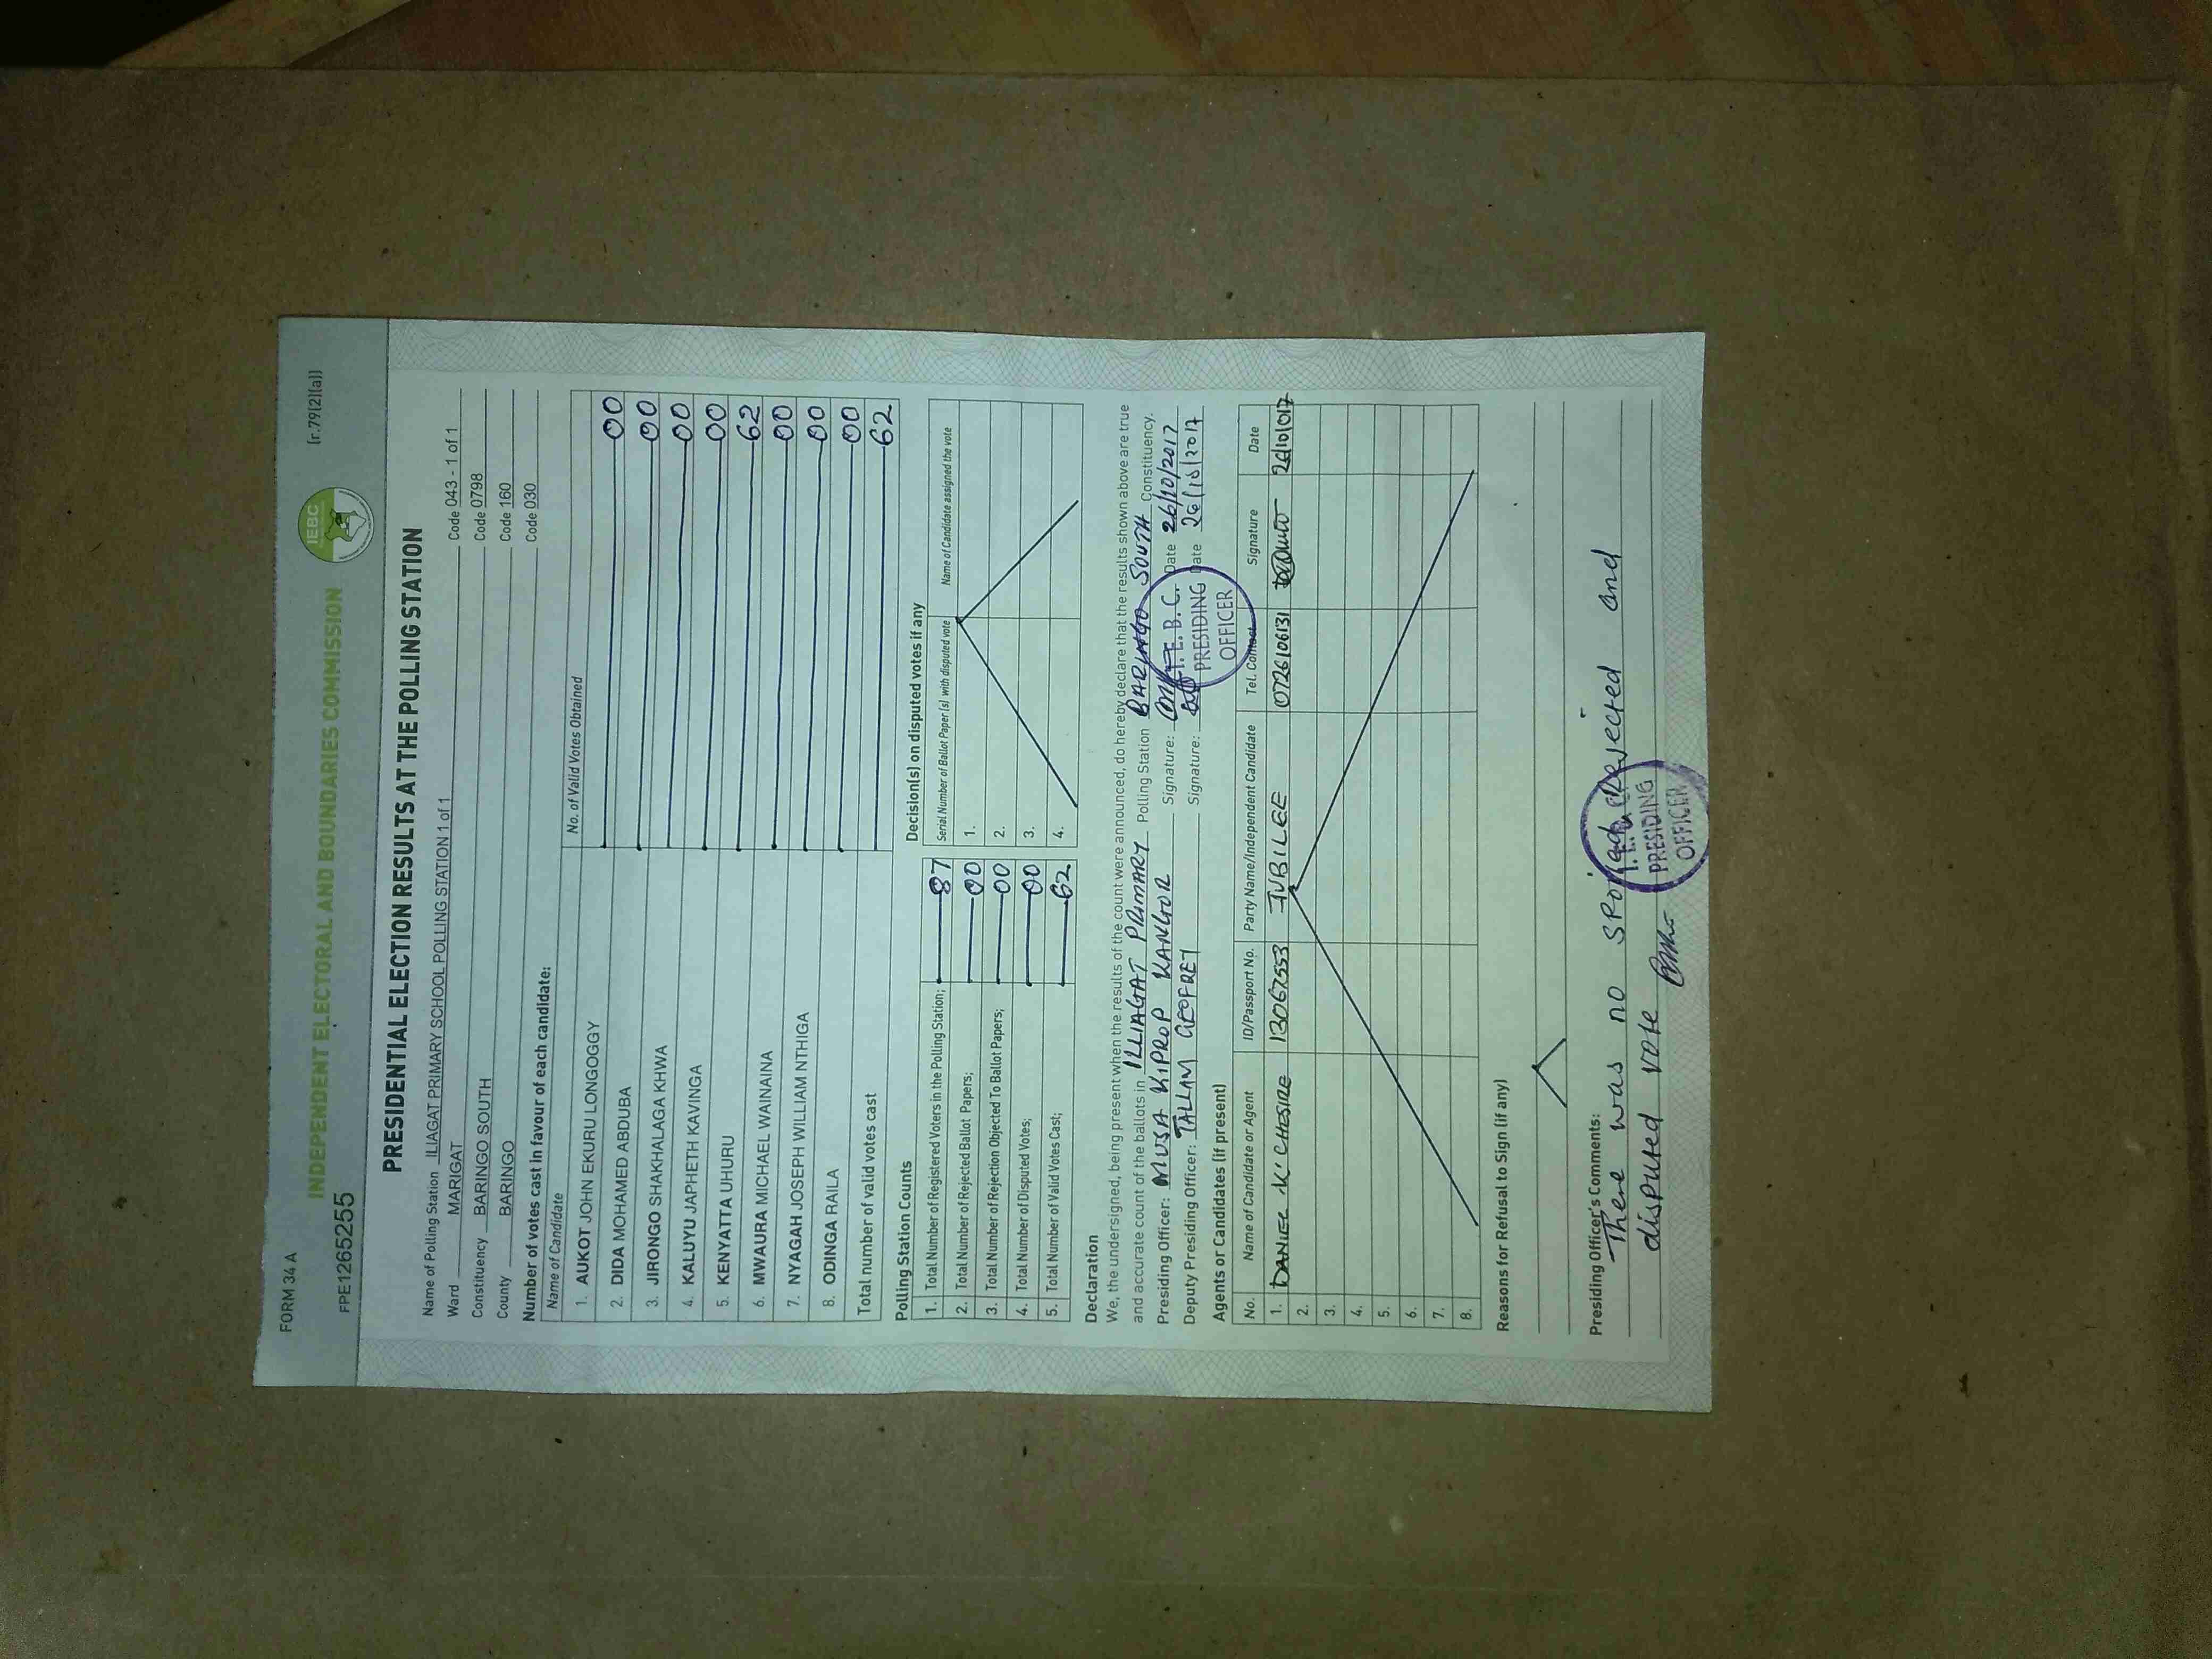 FORM 34 A (r.79(2)(a))
INDEPENDENT ELECTORAL AND BOUNDARIES COMMISSION IEBC
FPE1265255
PRESIDENTIAL ELECTION RESULTS AT THE POLLING STATION
Name of Polling Station ILIAGAT PRIMARY SCHOOL POLLING STATION 1 of 1 Code 043 - 1 of 1
Ward MARIGAT Code 0798
Constituency BARINGO SOUTH Code 160
County BARINGO Code 030
Number of votes cast in favour of each candidate:
Name of Candidate No. of Valid Votes Obtained
1. AUKOT JOHN EKURU LONGOGGY 00
2. DIDA MOHAMED ABDUBA 00
3. JIRONGO SHAKHALAGA KHWA 00
4. KALUYU JAPHETH KAVINGA 00
5. KENYATTA UHURU 62
6. MWAURA MICHAEL WAINAINA 00
7. NYAGAH JOSEPH WILLIAM NTHIGA 00
8. ODINGA RAILA 00
Total number of valid votes cast 62
Polling Station Counts
1. Total Number of Registered Voters in the Polling Station; 87
2. Total Number of Rejected Ballot Papers; 00
3. Total Number of Rejection Objected To Ballot Papers; 00
4. Total Number of Disputed Votes; 00
5. Total Number of Valid Votes Cast; 62
Decision(s) on disputed votes if any
Serial Number of Ballot Paper (s) with disputed vote Name of Candidate assigned the vote
1.
2.
3.
4.
Declaration
We, the undersigned, being present when the results of the count were announced, do hereby declare that the results shown above are true
and accurate count of the ballots in ILLIAGAT PRIMARY Polling Station BARINGO SOUTH Constituency.
Presiding Officer: MUSA KIPROP KANGOR Signature: Date 26/10/2017
Deputy Presiding Officer: TALLAM GEOFREY Signature: Date 26/10/2017
I.E.B.C.
PRESIDING
OFFICER
Agents or Candidates (if present)
No. Name of Candidate or Agent ID/Passport No. Party Name/Independent Candidate Tel. Contact Signature Date
1. DANIEL K. CHESIRE 13067553 JUBILEE 0726106131 26/10/017
2.
3.
4.
5.
6.
7.
8.
Reasons for Refusal to Sign (if any)
Presiding Officer's Comments:
There was no rejected and
disputed vote
PRESIDING
OFFICER